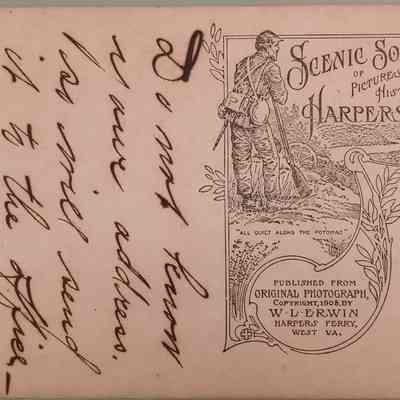 Do not know
your address.
so will send
it to the office—
SCENIC SO
OF
PICTURES
HIS
HARPERS
"ALL QUIET ALONG THE POTOMAC"
PUBLISHED FROM
ORIGINAL PHOTOGRAPH,
COPYRIGHT, 1908, BY
W. L. ERWIN
HARPERS' FERRY,
WEST VA.